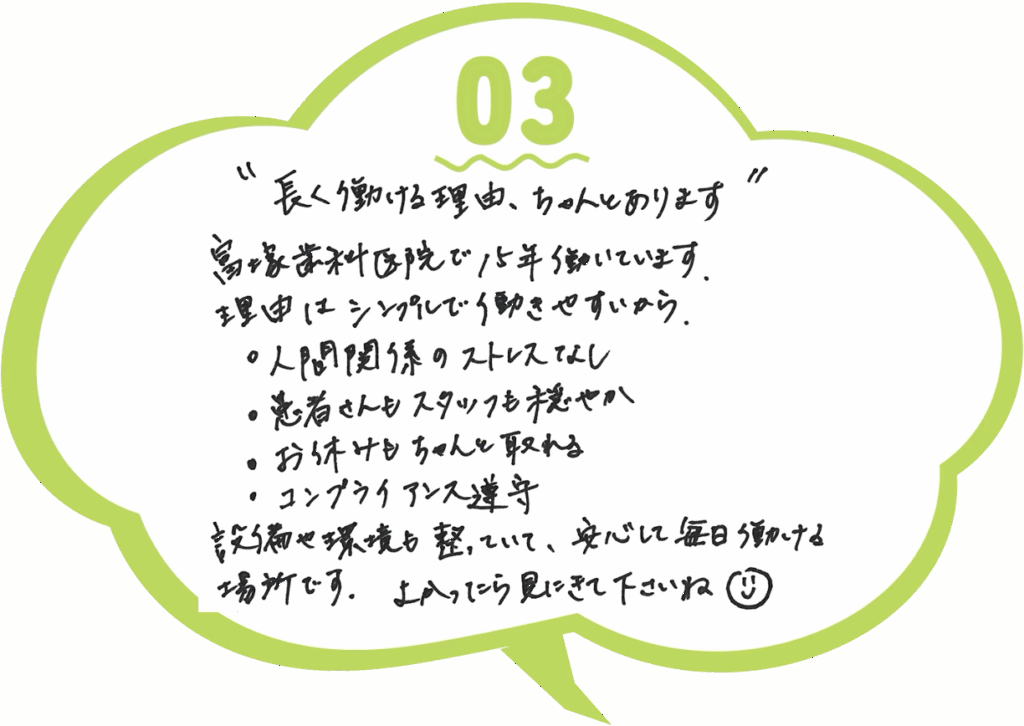 03
“長く働ける理由、ちゃんとあります”
富塚歯科医院で15年働いています.
理由はシンプルで働きやすいから.
・人間関係のストレスなし
・患者さんもスタッフも穏やか
・お休みもちゃんと取れる
・コンプライアンス遵守
設備や環境も整っていて、安心して毎日働ける
場所です. よかったら見にきて下さいね